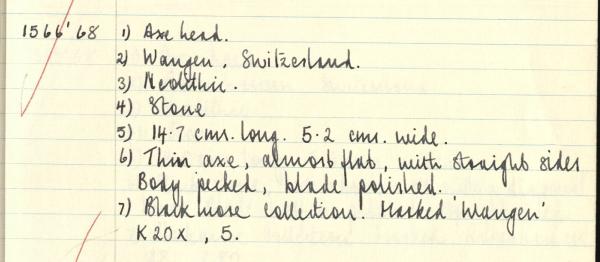 1566'68 1) Axe head.
2) Wangen, Switzerland.
3) Neolithic.
4) Stone
5) 14.7 cms. long. 5.2 cms. wide.
6) Thin axe, almost flat, with straight sides
Body pecked, blade polished.
7) Blackmore collection. Marked 'Wangen'
K20X, 5.